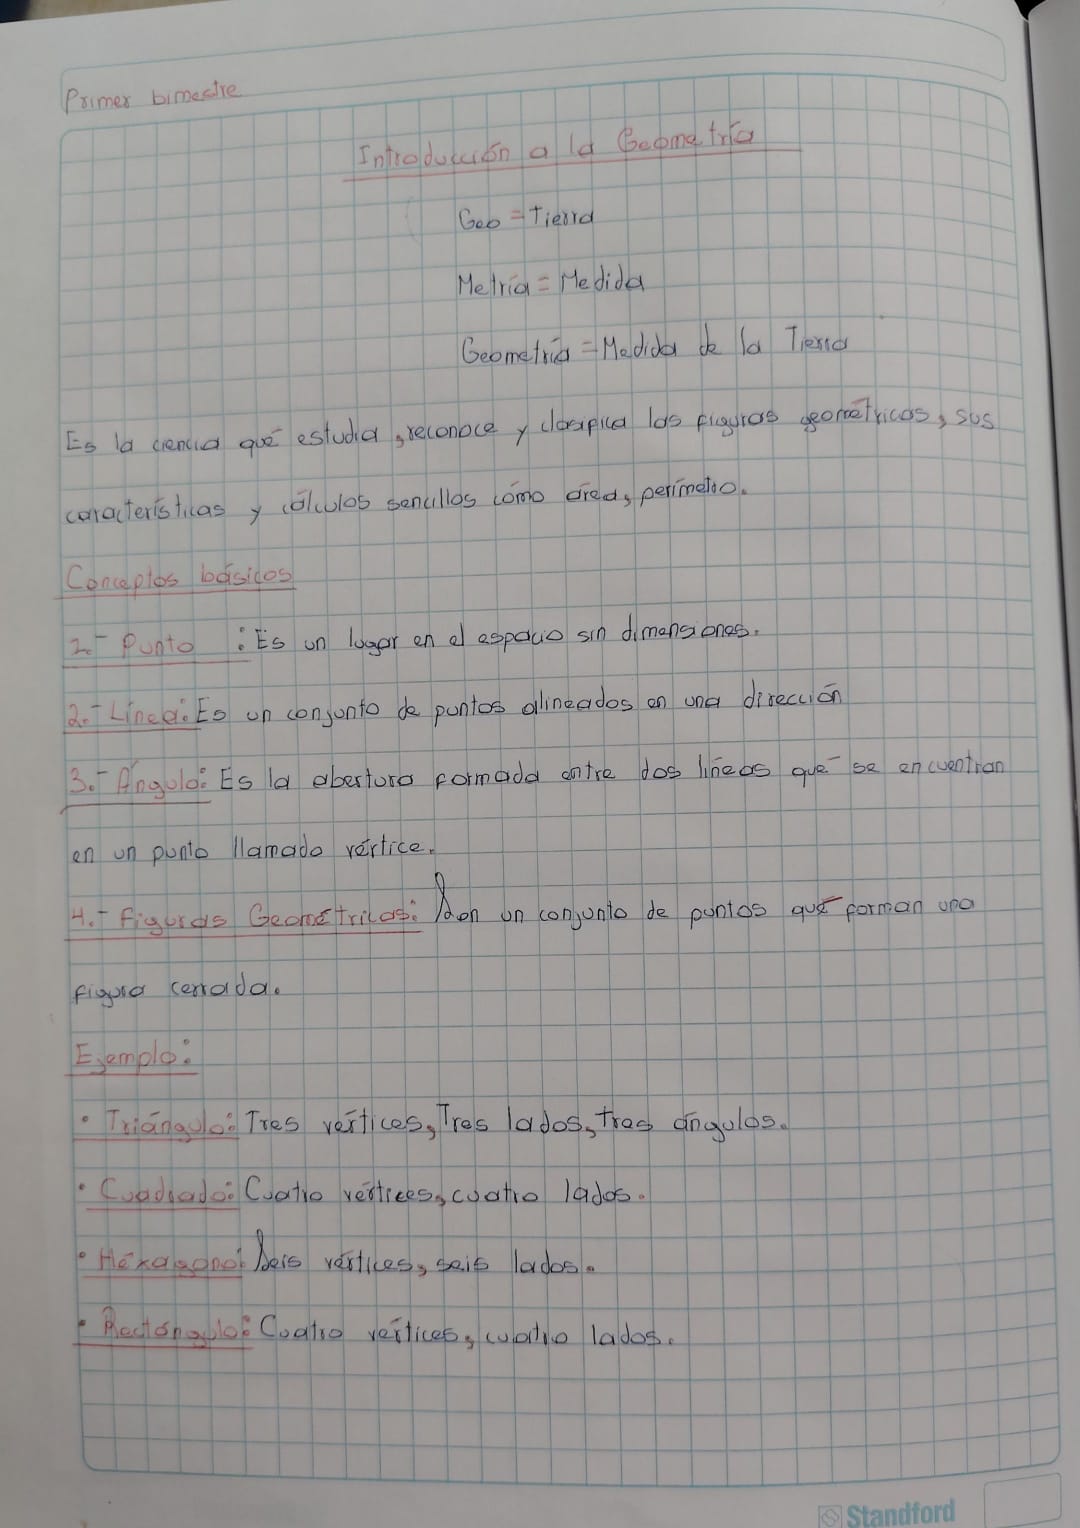 Primer bimestre
Introducción a la Geometría
Geo = Tierra
Metría = Medida
Geometría = Medida de la Tierra
Es la ciencia qué estudia, reconoce y clasifica las figuras geométricas, sus
características y cálculos sencillos cómo área, perímetro.
Conceptos básicos
1.- Punto : Es un lugar en el espacio sin dimensiones.
2.- Línea: Es un conjunto de puntos alineados en una dirección
3.- Ángulo: Es la abertura formada entre dos líneas qué se encuentran
en un punto llamado vértice.
4.- Figuras Geométricas: Son un conjunto de puntos qué forman una
figura cerrada.
Ejemplo:
• Triángulo: Tres vértices, Tres lados, tres ángulos.
• Cuadrado: Cuatro vértices, cuatro lados.
• Héxagono: Seis vértices, seis lados.
• Rectángulo: Cuatro vértices, cuatro lados.
Standford